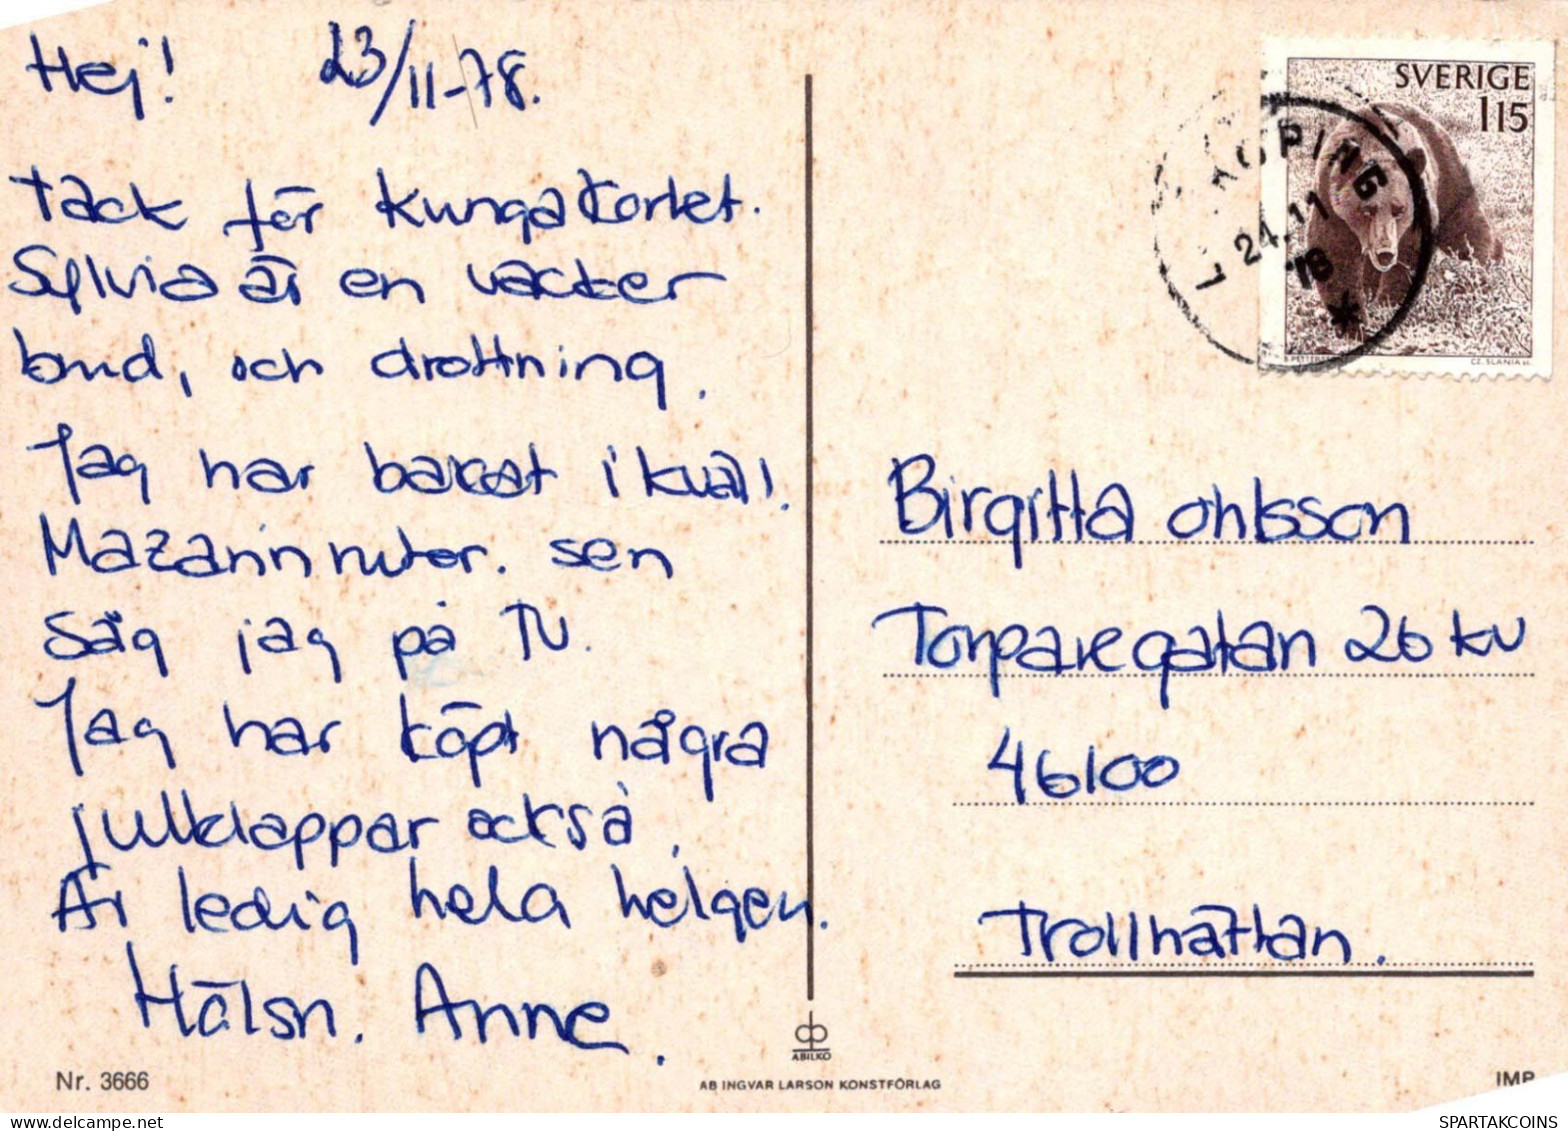 Hej! 23/11-78.
Tack för kungakortet.
Sylvia är en vacker
brud, och drottning.
Jag har bakat ikväll.
Mazarinrutor. sen
såg jag på TV.
Jag har köpt några
julklappar också.
Är ledig hela helgen.
Hälsn. Anne.
Nr. 3666
SVERIGE
115
KÖPING
24.11
78
*
CZ. SLANIA sc.
Birgitta Ohlsson
Torparegatan 26 KV
46100
Trollhättan.
ABILKO
AB INGVAR LARSON KONSTFÖRLAG
IMP
SPARTAKCOINS